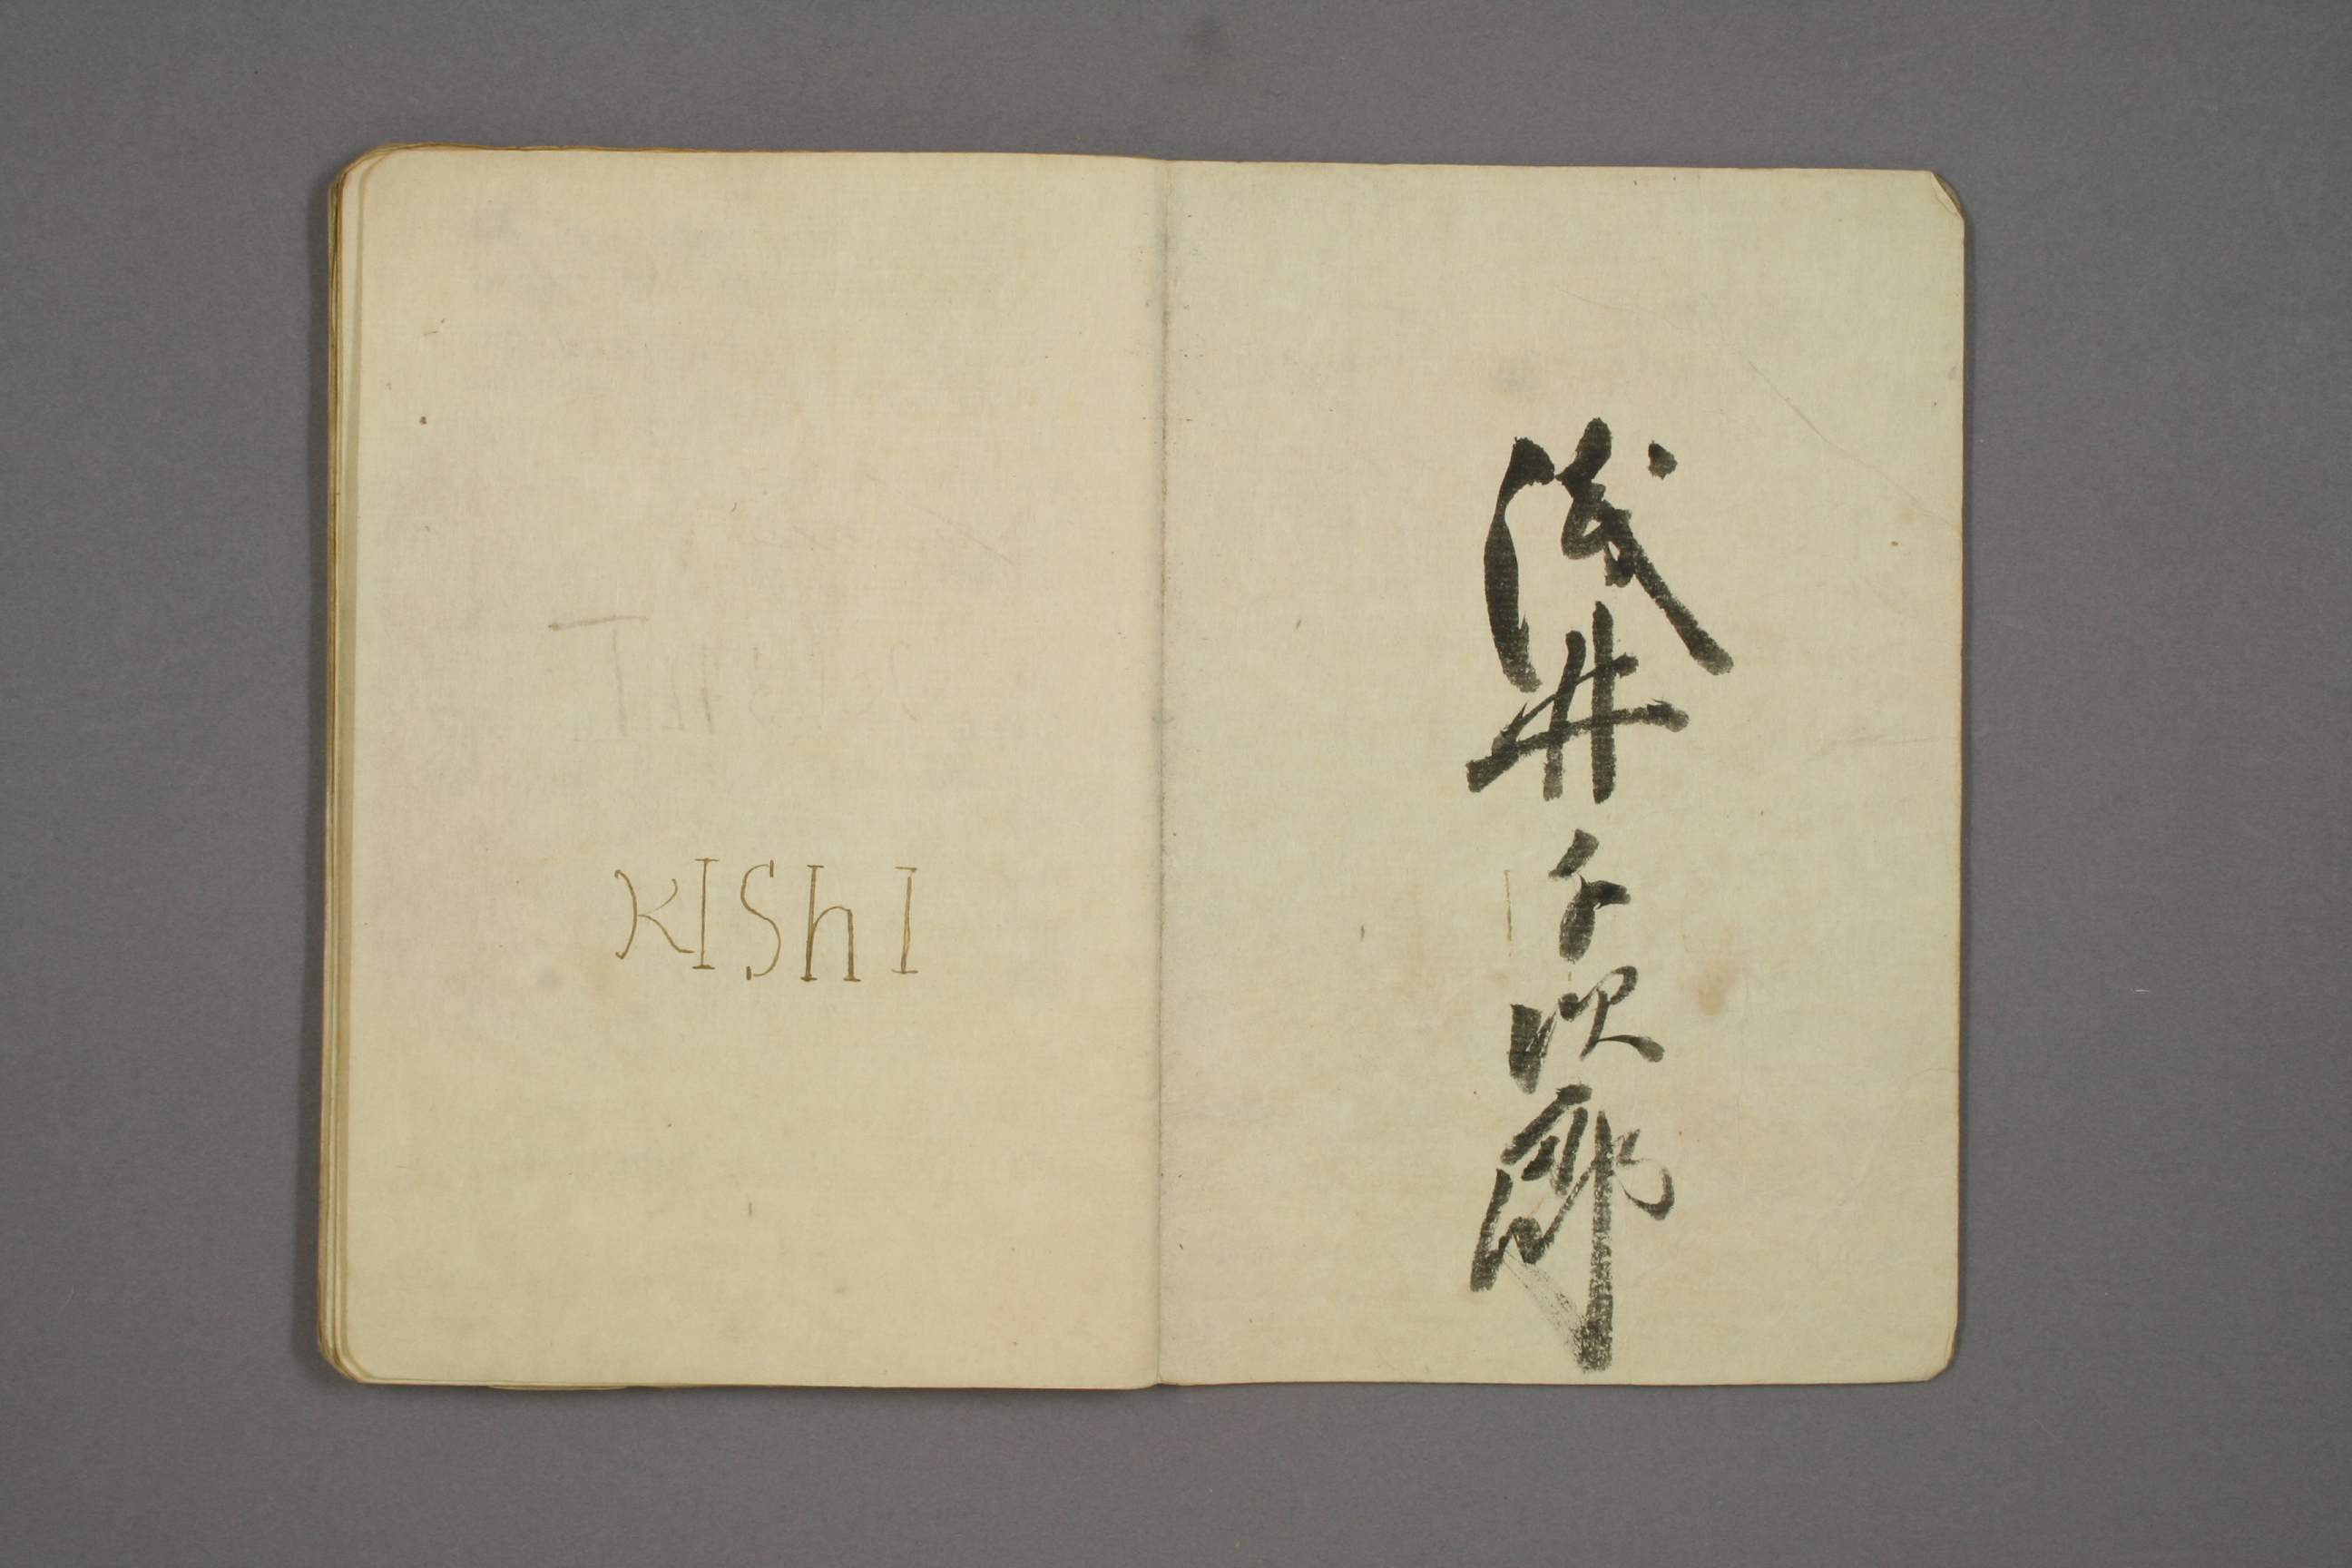 浅井千次郎
KIShI